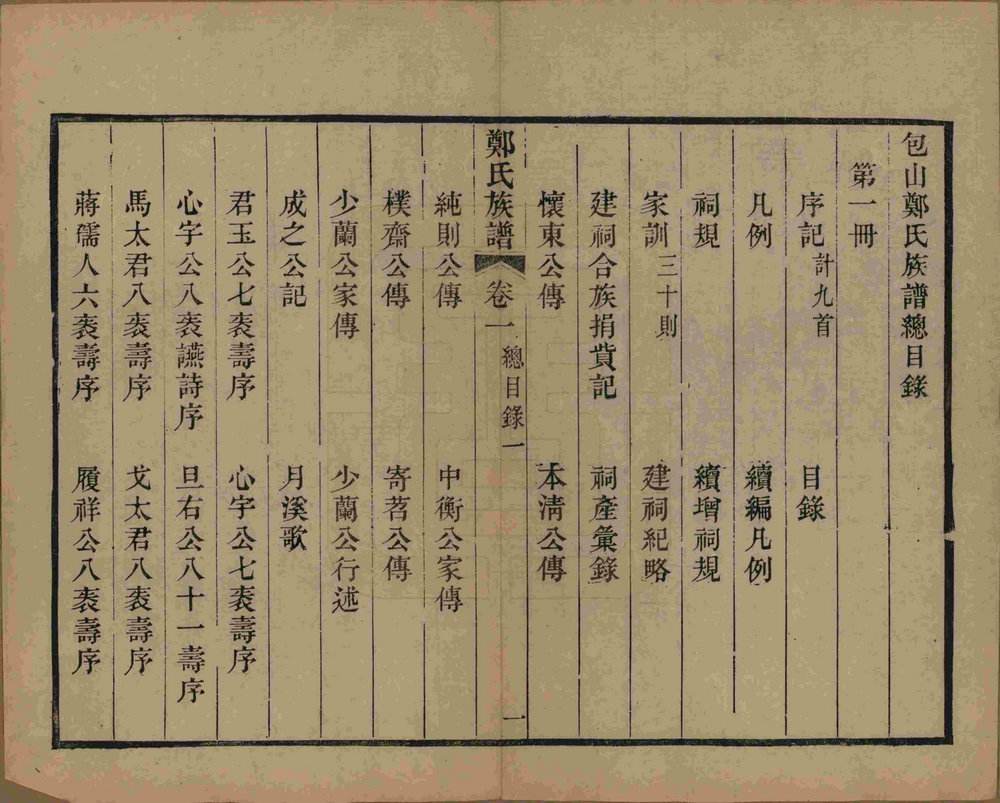 包山鄭氏族譜總目錄
第一冊
序記計九首　目錄
凡例　續編凡例
祠規　續增祠規
家訓三十則　建祠紀略
建祠合族捐貲記　祠產彙錄
懷東公傳　本淸公傳
鄭氏族譜　卷一　總目錄一　一
純則公傳　中衡公家傳
樸齋公傳　寄茗公傳
少蘭公家傳　少蘭公行述
成之公記　月溪歌
君玉公七袠壽序　心字公七袠壽序
心字公八袠讌詩序　旦右公八十一壽序
馬太君八袠壽序　戈太君八袠壽序
蔣儒人六袠壽序　履祥公八袠壽序